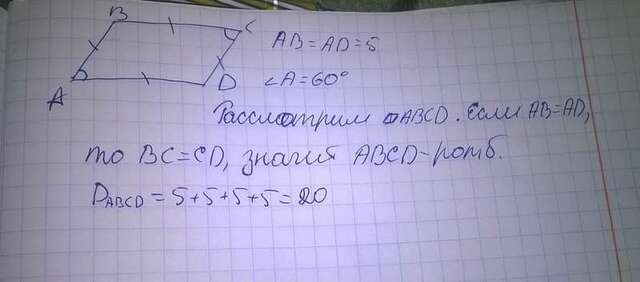 B
C
AB = AD = 5
∠A = 60°
A
D
Рассмотрим ▱ABCD. Если AB=AD,
то BC=CD, значит ABCD-ромб.
P ABCD = 5+5+5+5=20